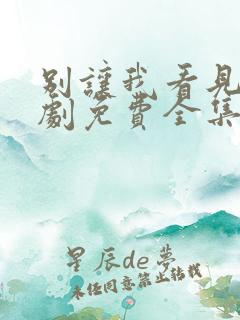 別讓我看見
劇免費全集
星辰de夢
未经同意禁止转载